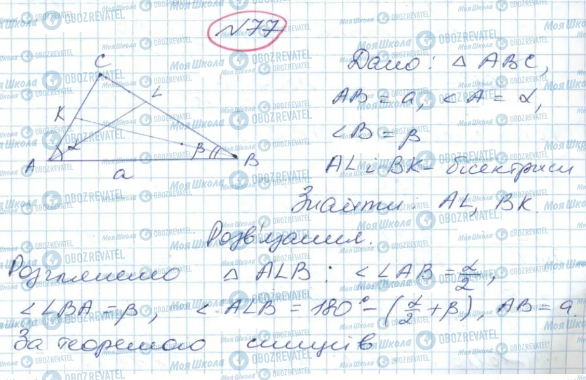 №77
Дано: △ ABC,
AB = a, ∠A = α,
∠B = β
AL і BK - бісектриси
Знайти: AL, BK.
Розв'язання.
Розглянемо △ ALB: ∠LAB = α/2,
∠LBA = β, ∠ALB = 180° - (α/2 + β), AB = a.
За теоремою синусів
C
L
K
α
β
A
B
a
Моя Школа
OBOZREVATEL